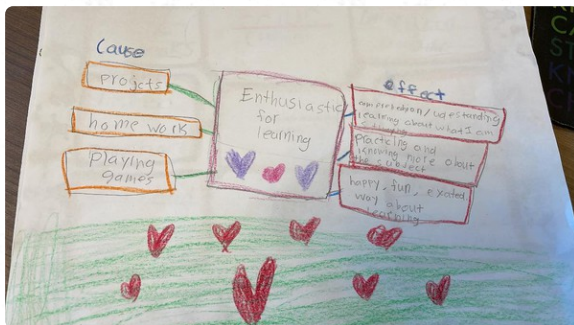 Cause
projcts
home work
playing
games
Enthusiastic
for
learning
effect
understanding
learning about what I am
practicing and
knowing more about
the subject
happy, fun, exated
way about
learning